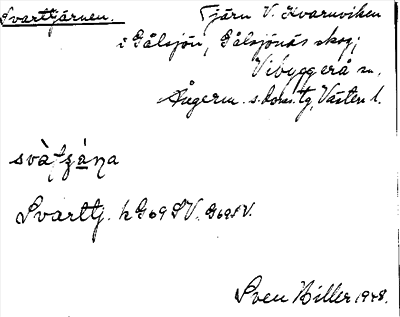 Svarttjärnen. Tjärn V. Kvarnviken
i Gålsjön, Gålsjönäs skog;
Vibyggerå sn,
Ångerm. s. doms. tg, Västern. l.
svà̀tʒ̍a̲ŋa
Svarttj. k G 69 SV. G 69 SV.
Sven Hiller 1948.